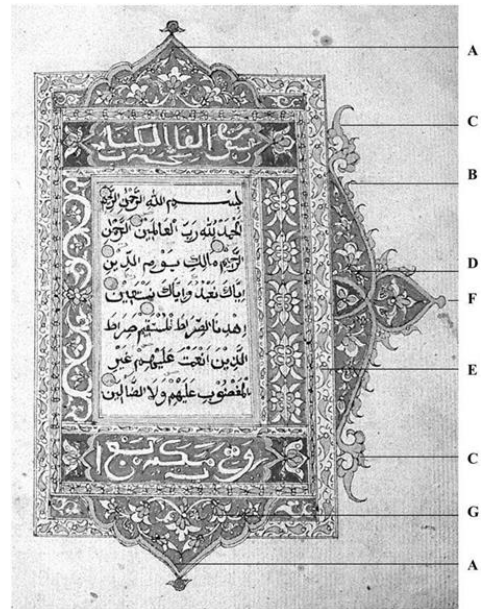 A
C
B
D
F
E
C
G
A
سورة الفاتحة الكتاب
بِسْمِ اللهِ الرَّحْمٰنِ الرَّحِيْمِ
اَلْحَمْدُ لِلهِ رَبِّ الْعَالَمِيْنَ الرَّحْمٰنِ
الرَّحِيْمِ مَالِكِ يَوْمِ الدِّيْنِ
اِيَّاكَ نَعْبُدُ وَاِيَّاكَ نَسْتَعِيْنُ
اِهْدِنَا الصِّرَاطَ الْمُسْتَقِيْمَ صِرَاطَ
الَّذِيْنَ اَنْعَمْتَ عَلَيْهِمْ غَيْرِ
الْمَغْضُوْبِ عَلَيْهِمْ وَلَا الضَّالِّيْنَ
مكة سبع